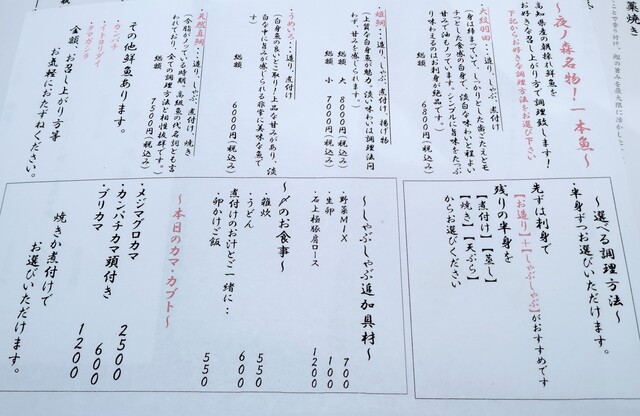 藁焼き
〜夜ノ森名物！一本魚〜
高知県産の朝採れ鮮魚を
お好きな召し上がり方で調理致します！
下記からお好きな調理方法をお選び下さい
・大紋羽田・・・造り、しゃぶ、煮付け
身は締まっていて、しっかりとした歯ごたえとモ
チっとした食感の白身で、淡白な味わいと程よい
甘みで油もノっています。シンプルに旨味をたっぷ
り味わえるのはお刺身が絶品です。
総額 6800円(税込み)
(上質な白身魚が魅力。淡い味わいは調理法問
わず、甘みを感じられます)
総額 大 8000円(税込み)
総額 小 7000円(税込み)
・うめいろ・・・造り、煮付け
(白身魚の良いとこ取り！上品な甘みがあり、淡
白な中に旨みが感じられる非常に美味な魚で
総額 6000円(税込み)
・天然真鯛・・・造り、しゃぶ、煮付け、焼き
(今脂がノッている時期、高級魚の代名詞とも言
われており、全ての調理方法と相性抜群です。)
総額 7500円(税込み)
その他鮮魚あります。
・カンパチ
金額、お召し上がり方等
お気軽におたずねください。
〜選べる調理方法〜
・半身ずつお選びいただけます。
先ずは刺身で
【お造り】+【しゃぶしゃぶ】がおすすめです
残りの半身を
【煮付け】【蒸し】
【焼き】【天ぷら】
からお選びください
〜しゃぶしゃぶ追加具材〜
・野菜MIX 700
・生卵 100
・石上極豚肩ロース 1200
〜〆のお食事〜
・雑炊 550
・うどん 600
煮付けのお汁とご一緒に・・
・卵かけご飯 550
〜本日のカマ・カブト〜
・メジマグロカマ 2500
・カンパチカマ頭付き 600
・ブリカマ 1200
焼きか煮付けで
お選びいただけます。